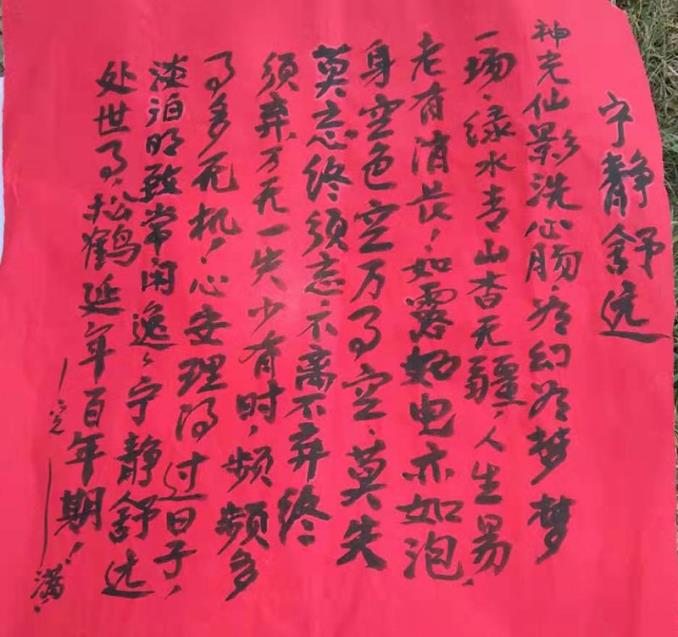 宁静舒远
神光仙影洗心肠，为幻为梦梦
一场，绿水青山杳无疆，人生易
老有消长！如露如电亦如泡，
身空色空万事空，莫失
莫忘终须忘，不离不弃终
须弃，万无一失少有时，频频多
事多无机！心安理得过日子，
淡泊明致常闲逸，宁静舒达
处世事，松鹤延年百年期！